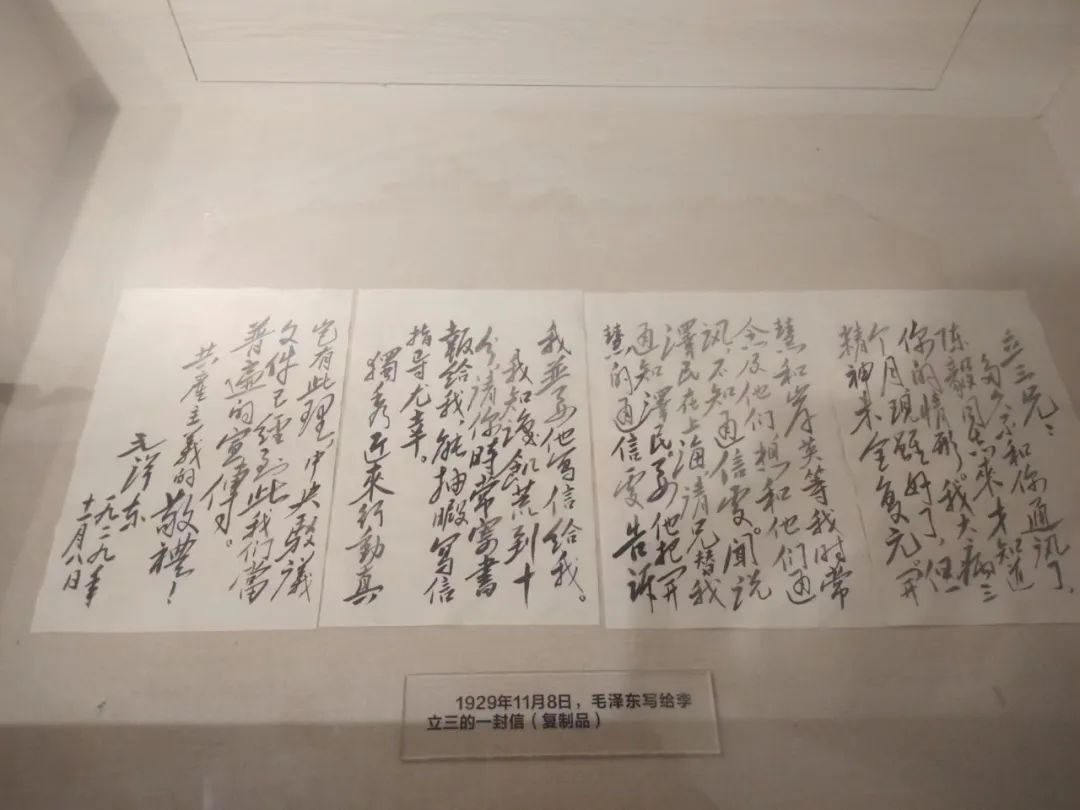 立三兄：
多久不和你通訊了，
陈毅同志来才知道
你的情形。我大病三
个月，現雖好了，但
精神未全复元。開
慧和岸英等，我时常
念及他们，想和他们通
訊，不知通信处。闻说
澤民在上海，請兄替我
通知澤民，要他把開
慧的通信处告訴
我，並要他写信给我。
我知識飢荒到十
分，请你時常寄書
報給我，能抽暇寫信
指导尤幸。
獨秀近來行動真
岂有此理，中央駁議
文件已經到此，我们當
普遍的宣傳。
共產主義的
敬禮！
毛泽东
一九二九年
十一月八日
1929年11月8日，毛泽东写给李
立三的一封信（复制品）